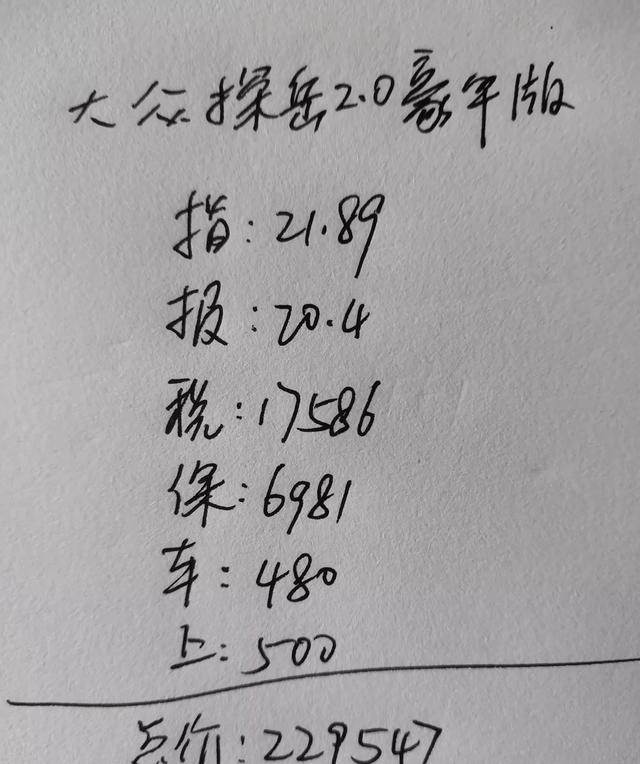 大众探岳2.0豪华版
指:21.89
报:20.4
税:17586
保:6981
车:480
上:500
总价:229547